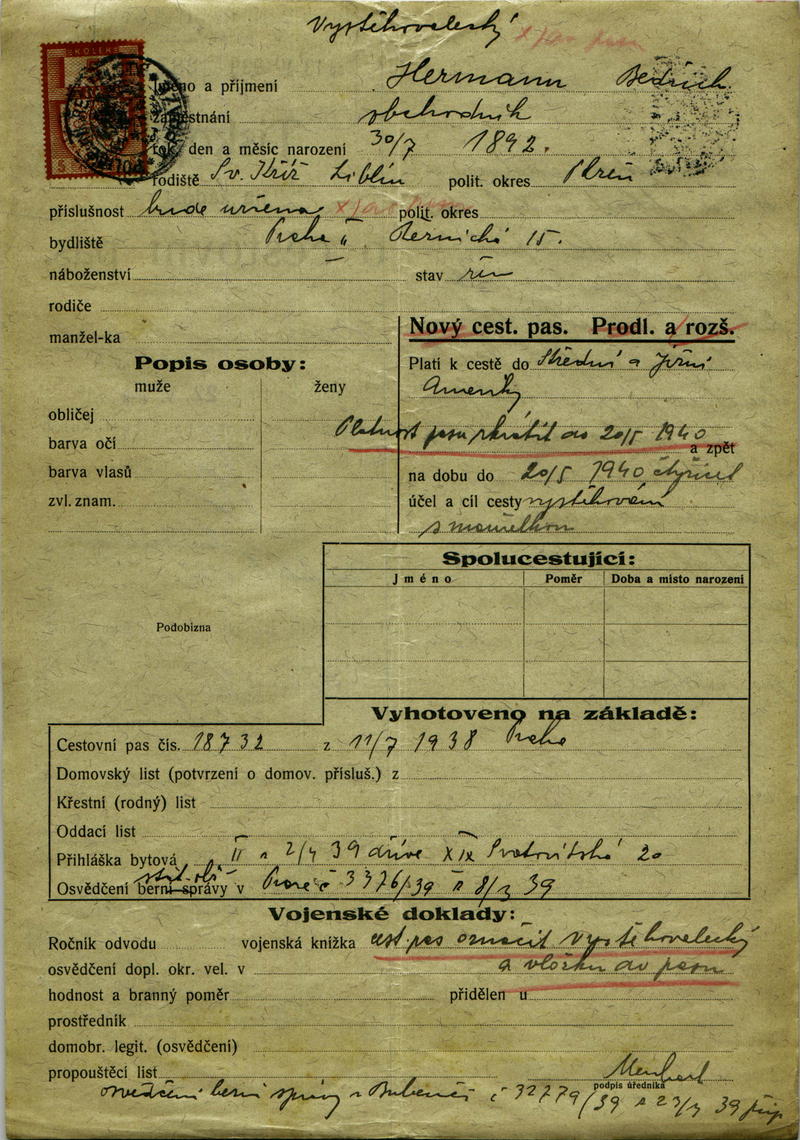 Vystěhovalecký
KOLEK
Jméno a příjmení Hermann Bedřich
Zaměstnání obchodník
rok, den a měsíc narození 30/7 1892.
rodiště Sv. Kříž Liblín polit. okres Plzeň
příslušnost bude určena polit. okres
bydliště Praha II
15.
náboženství stav žen
rodiče
manžel-ka
Nový cest. pas. Prodl. a rozš.
Popis osoby:
muže ženy
Platí k cestě do Střední a Jižní
Ameriky
obličej
Platnost pasu zkrátit do 20/5 1940
barva očí
a zpět
barva vlasů
na dobu do 20/5 1940 čtyřicet
zvl. znam.
účel a cíl cesty vystěhování
s manželkou
Spolucestující:
Jméno Poměr Doba a místo narození
Podobizna
Vyhotoveno na základě:
Cestovní pas čís. 18732 z 11/7 1938 Praha
Domovský list (potvrzení o domov. přísluš.) z
Křestní (rodný) list
Oddací list
Přihláška bytová II 2/4 39 dříve XIX Svatovítská 20
Osvědčení berní správy v Praze č 3376/39 8/3 39
Vojenské doklady:
Ročník odvodu vojenská knížka cest pas označit vystěhovalecký
osvědčení dopl. okr. vel. v a vložku do pasu
hodnost a branný poměr přidělen u
prostředník
domobr. legit. (osvědčení)
propouštěcí list
podpis úředníka
osvědčení berní správy v Bubenči č 32779/39 39